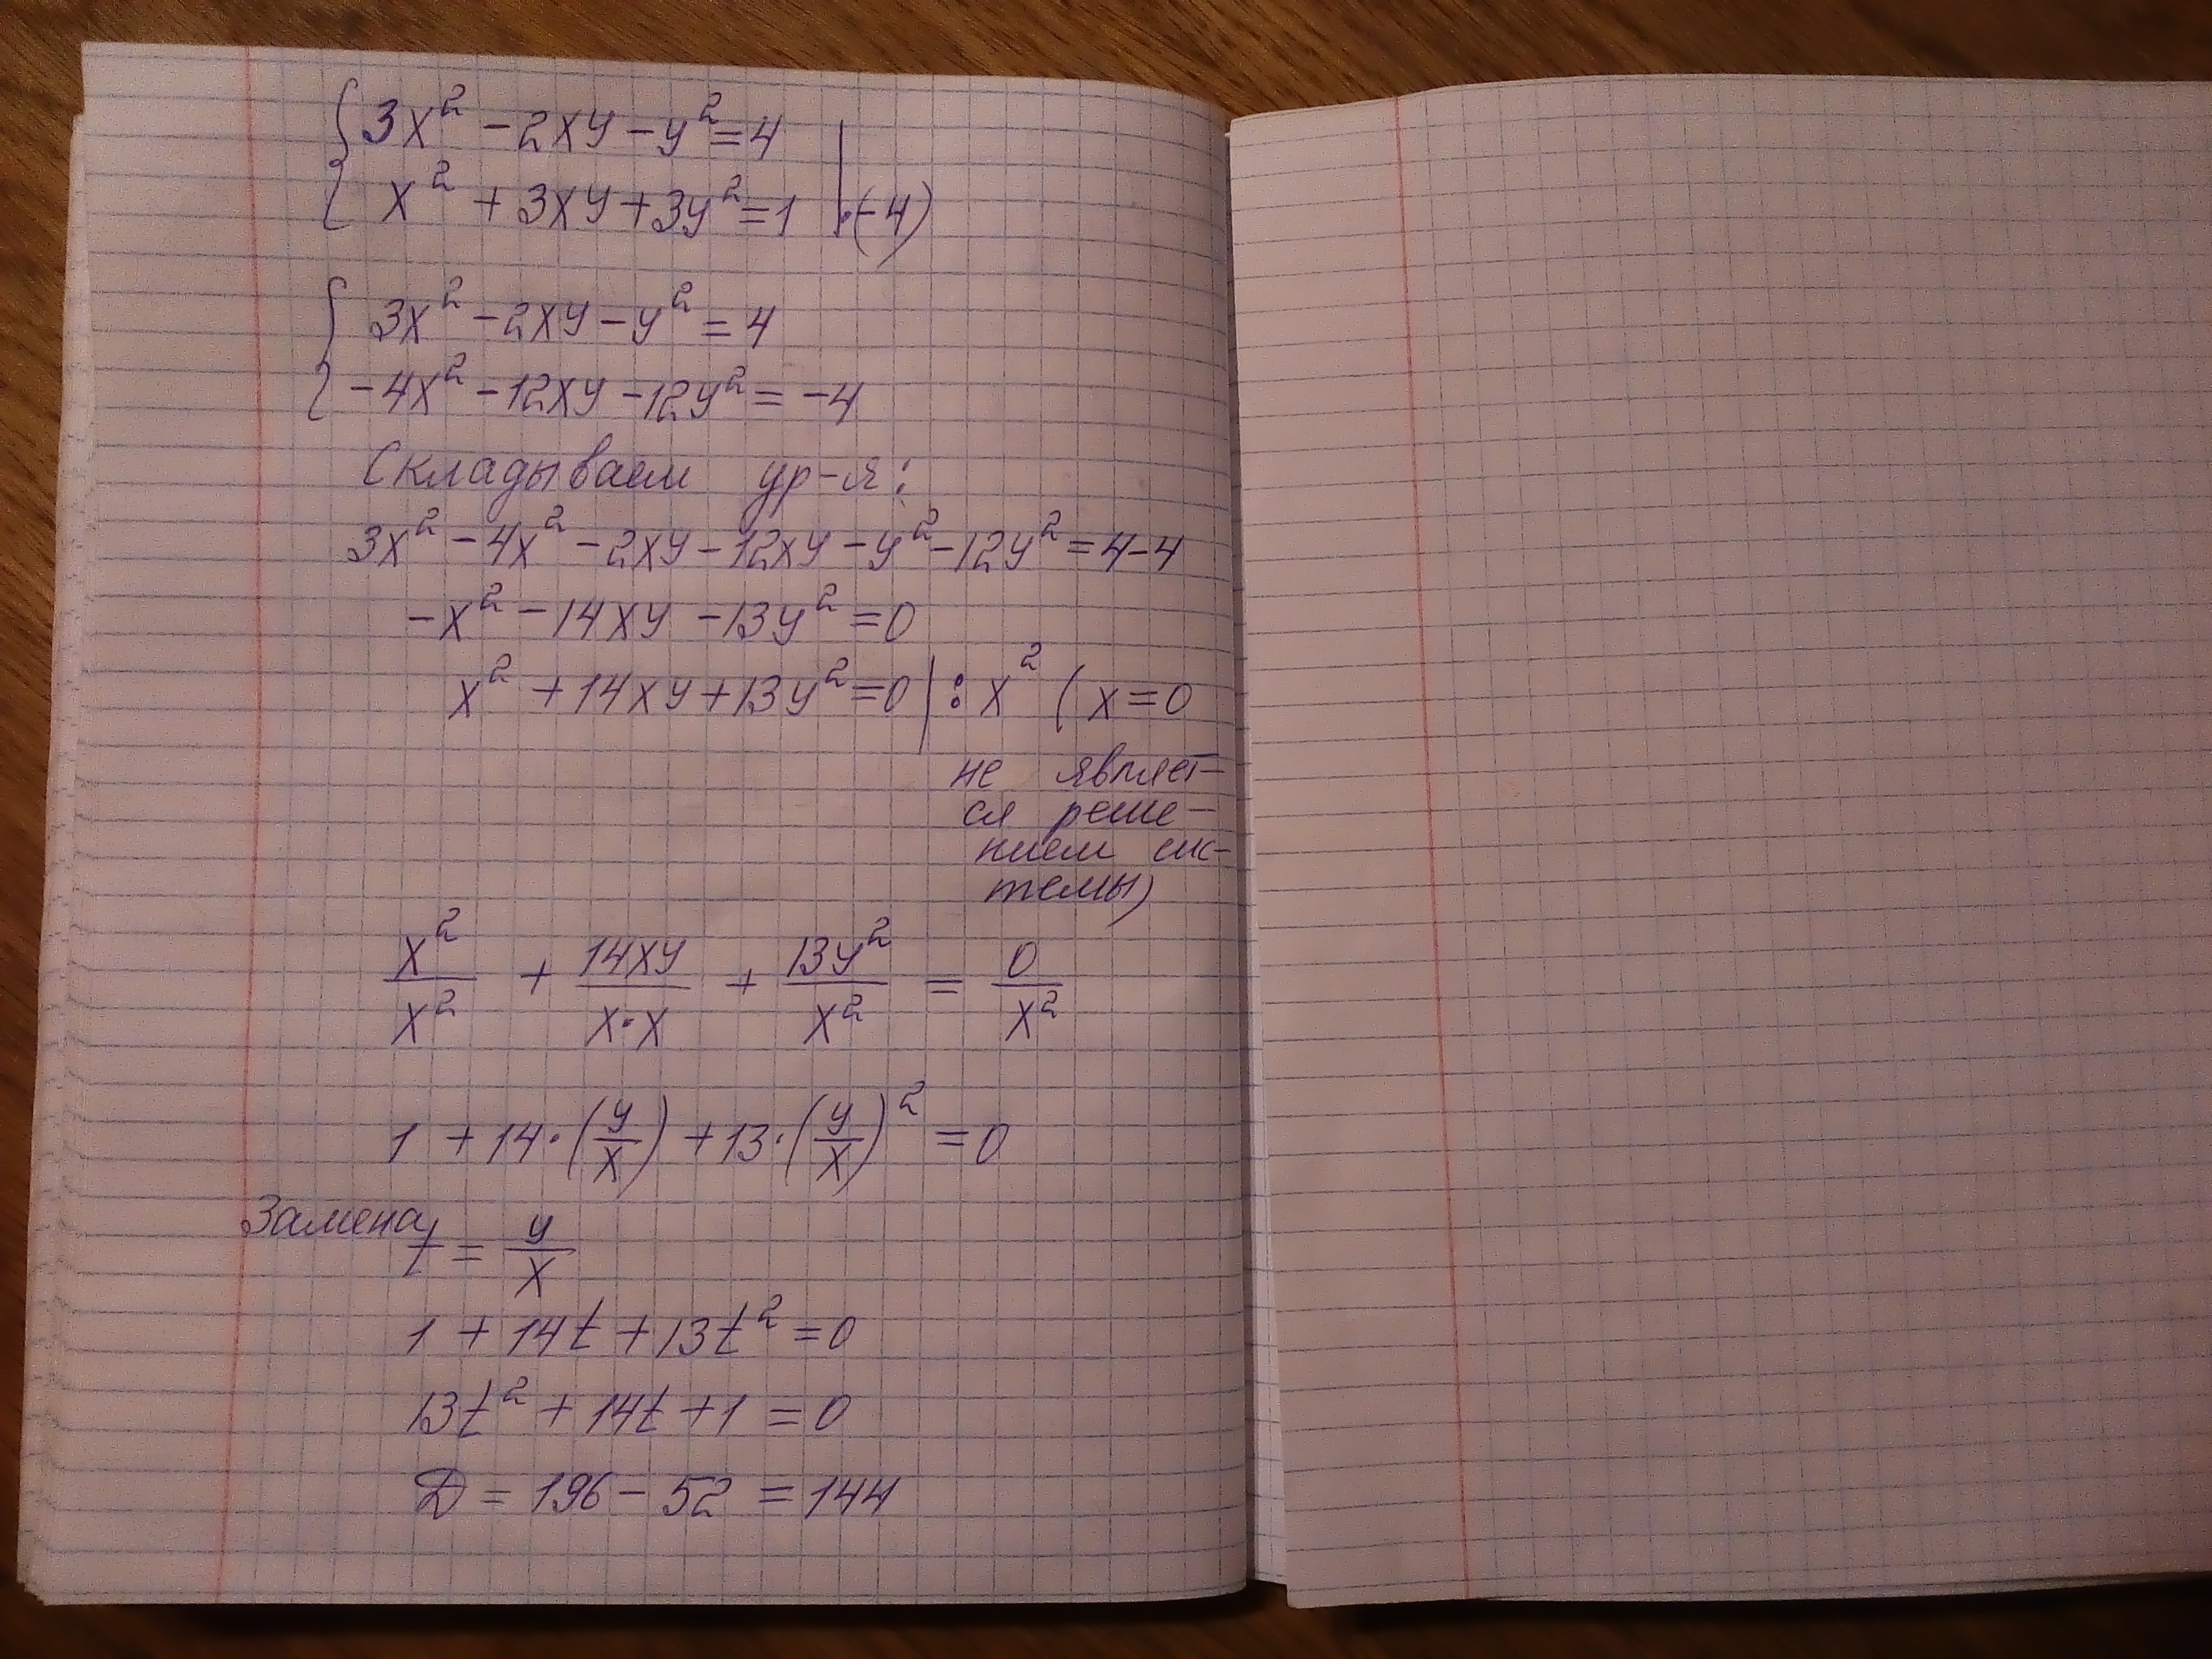 { 3x² - 2xy - y² = 4
x² + 3xy + 3y² = 1 | ·(-4)
{ 3x² - 2xy - y² = 4
-4x² - 12xy - 12y² = -4
Складываем ур-я:
3x² - 4x² - 2xy - 12xy - y² - 12y² = 4 - 4
-x² - 14xy - 13y² = 0
x² + 14xy + 13y² = 0 | : x² (x = 0
не являет-
ся реше-
нием сис-
темы)
x²/x² + 14xy/x·x + 13y²/x² = 0/x²
1 + 14·(y/x) + 13·(y/x)² = 0
Замена t = y/x
1 + 14t + 13t² = 0
13t² + 14t + 1 = 0
D = 196 - 52 = 144